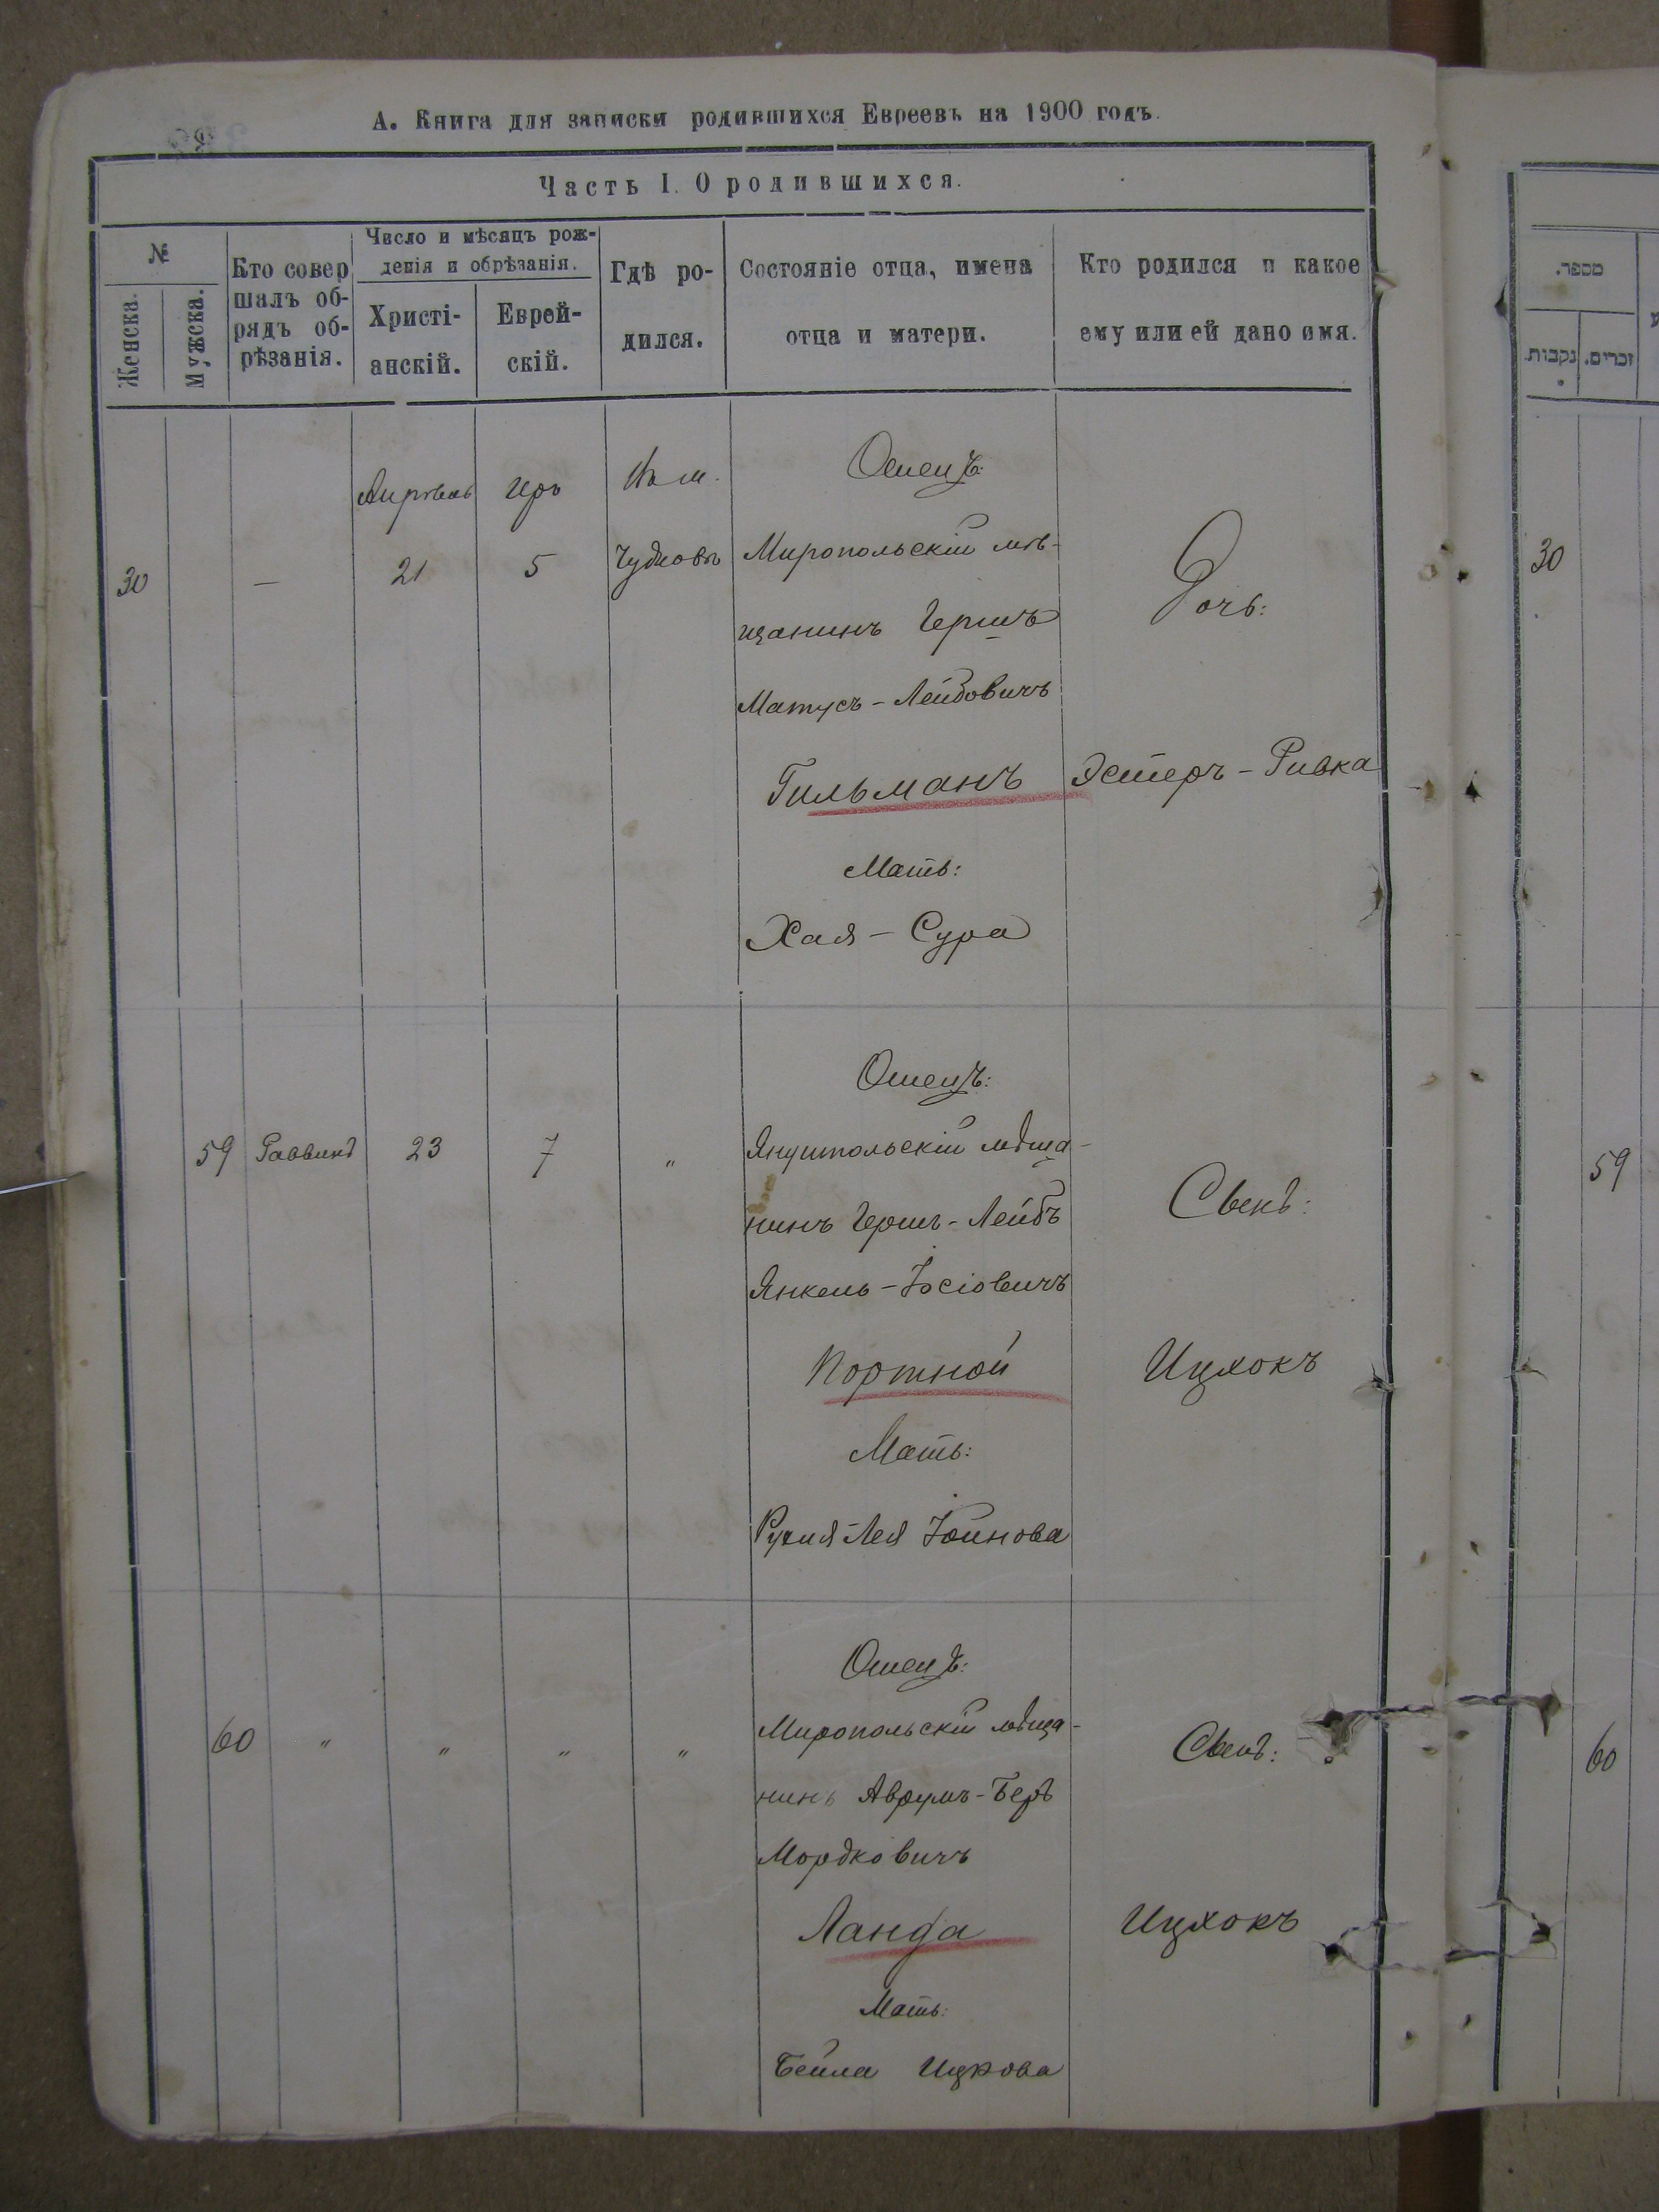 А. Книга для записки родившихся Евреевъ на 1900 годъ.
Часть I. О родившихся.
№
Женска.
Мужска.
Кто совер
шалъ об-
рядъ об-
рѣзанія.
Число и мѣсяцъ рож-
денія и обрѣзанія.
Христі-
анскій.
Еврей-
скій.
Гдѣ ро-
дился.
Состояніе отца, имена
отца и матери.
Кто родился и какое
ему или ей дано имя.
Апрѣль
Иръ
Въ м.
Отецъ:
30
—
21
5
Чудновъ
Миропольскій мѣ-
щанинъ Гершъ
Матусъ-Лейбовичъ
Гильманъ
Мать:
Хая-Сура
Дочь:
Эстеръ-Ривка
Отецъ:
59 Раввинъ 23 7 "
Янушпольскій мѣща-
нинъ Гершъ-Лейбъ
Янкель-Іосіовичъ
Портной
Мать:
Рухля Лея Іойнова
Сынъ:
Ицхокъ
Отецъ:
60 " " " "
Миропольскій мѣща-
нинъ Аврумъ-Беръ
Мордковичъ
Ланда
Мать:
Бейла Ицкова
Сынъ:
Ицхокъ
מספר.
זכרים.
נקבות.
30
59
60